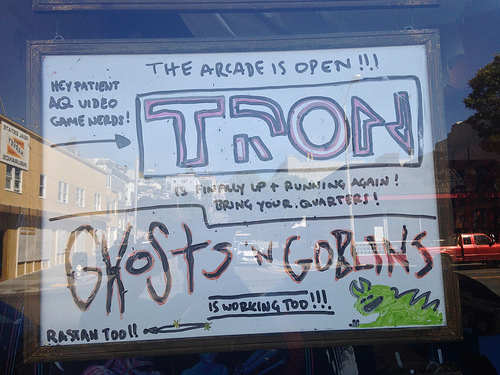 THE ARCADE IS OPEN!!!
HEY PATIENT
AQ VIDEO
GAME NERDS!
TRON
IS FINALLY UP + RUNNING AGAIN!
BRING YOUR QUARTERS!
GHOSTS 'N GOBLINS
IS WORKING TOO!!!
RASTAN TOO!!